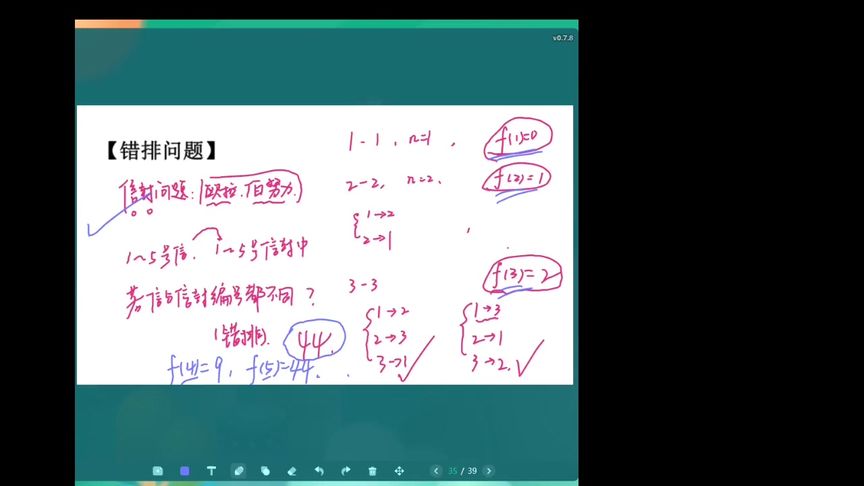 v0.7.8
【错排问题】
信封问题:(欧拉.伯努力)
1~5号信. 1~5号信封中
若信与信封编号都不同?
(错排). 44
f(4)=9, f(5)=44.
1-1, n=1, f(1)=0
2-2, n=2. f(2)=1
1→2
2→1
3-3 f(3)=2
1→2
2→3
3→1
1→3
2→1
3→2.
35 / 39